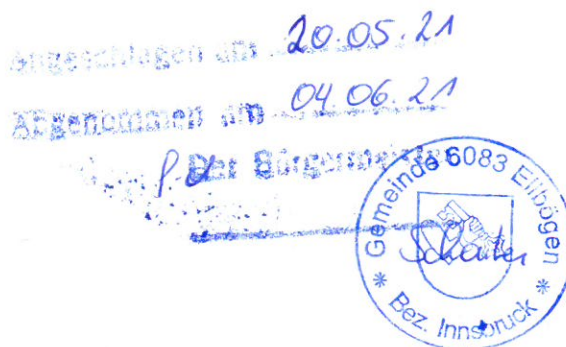 Angeschlagen am 20.05.21
Abgenommen am 04.06.21
Der Bürgermeister
Gemeinde 6083 Ellbögen
* Bez. Innsbruck *